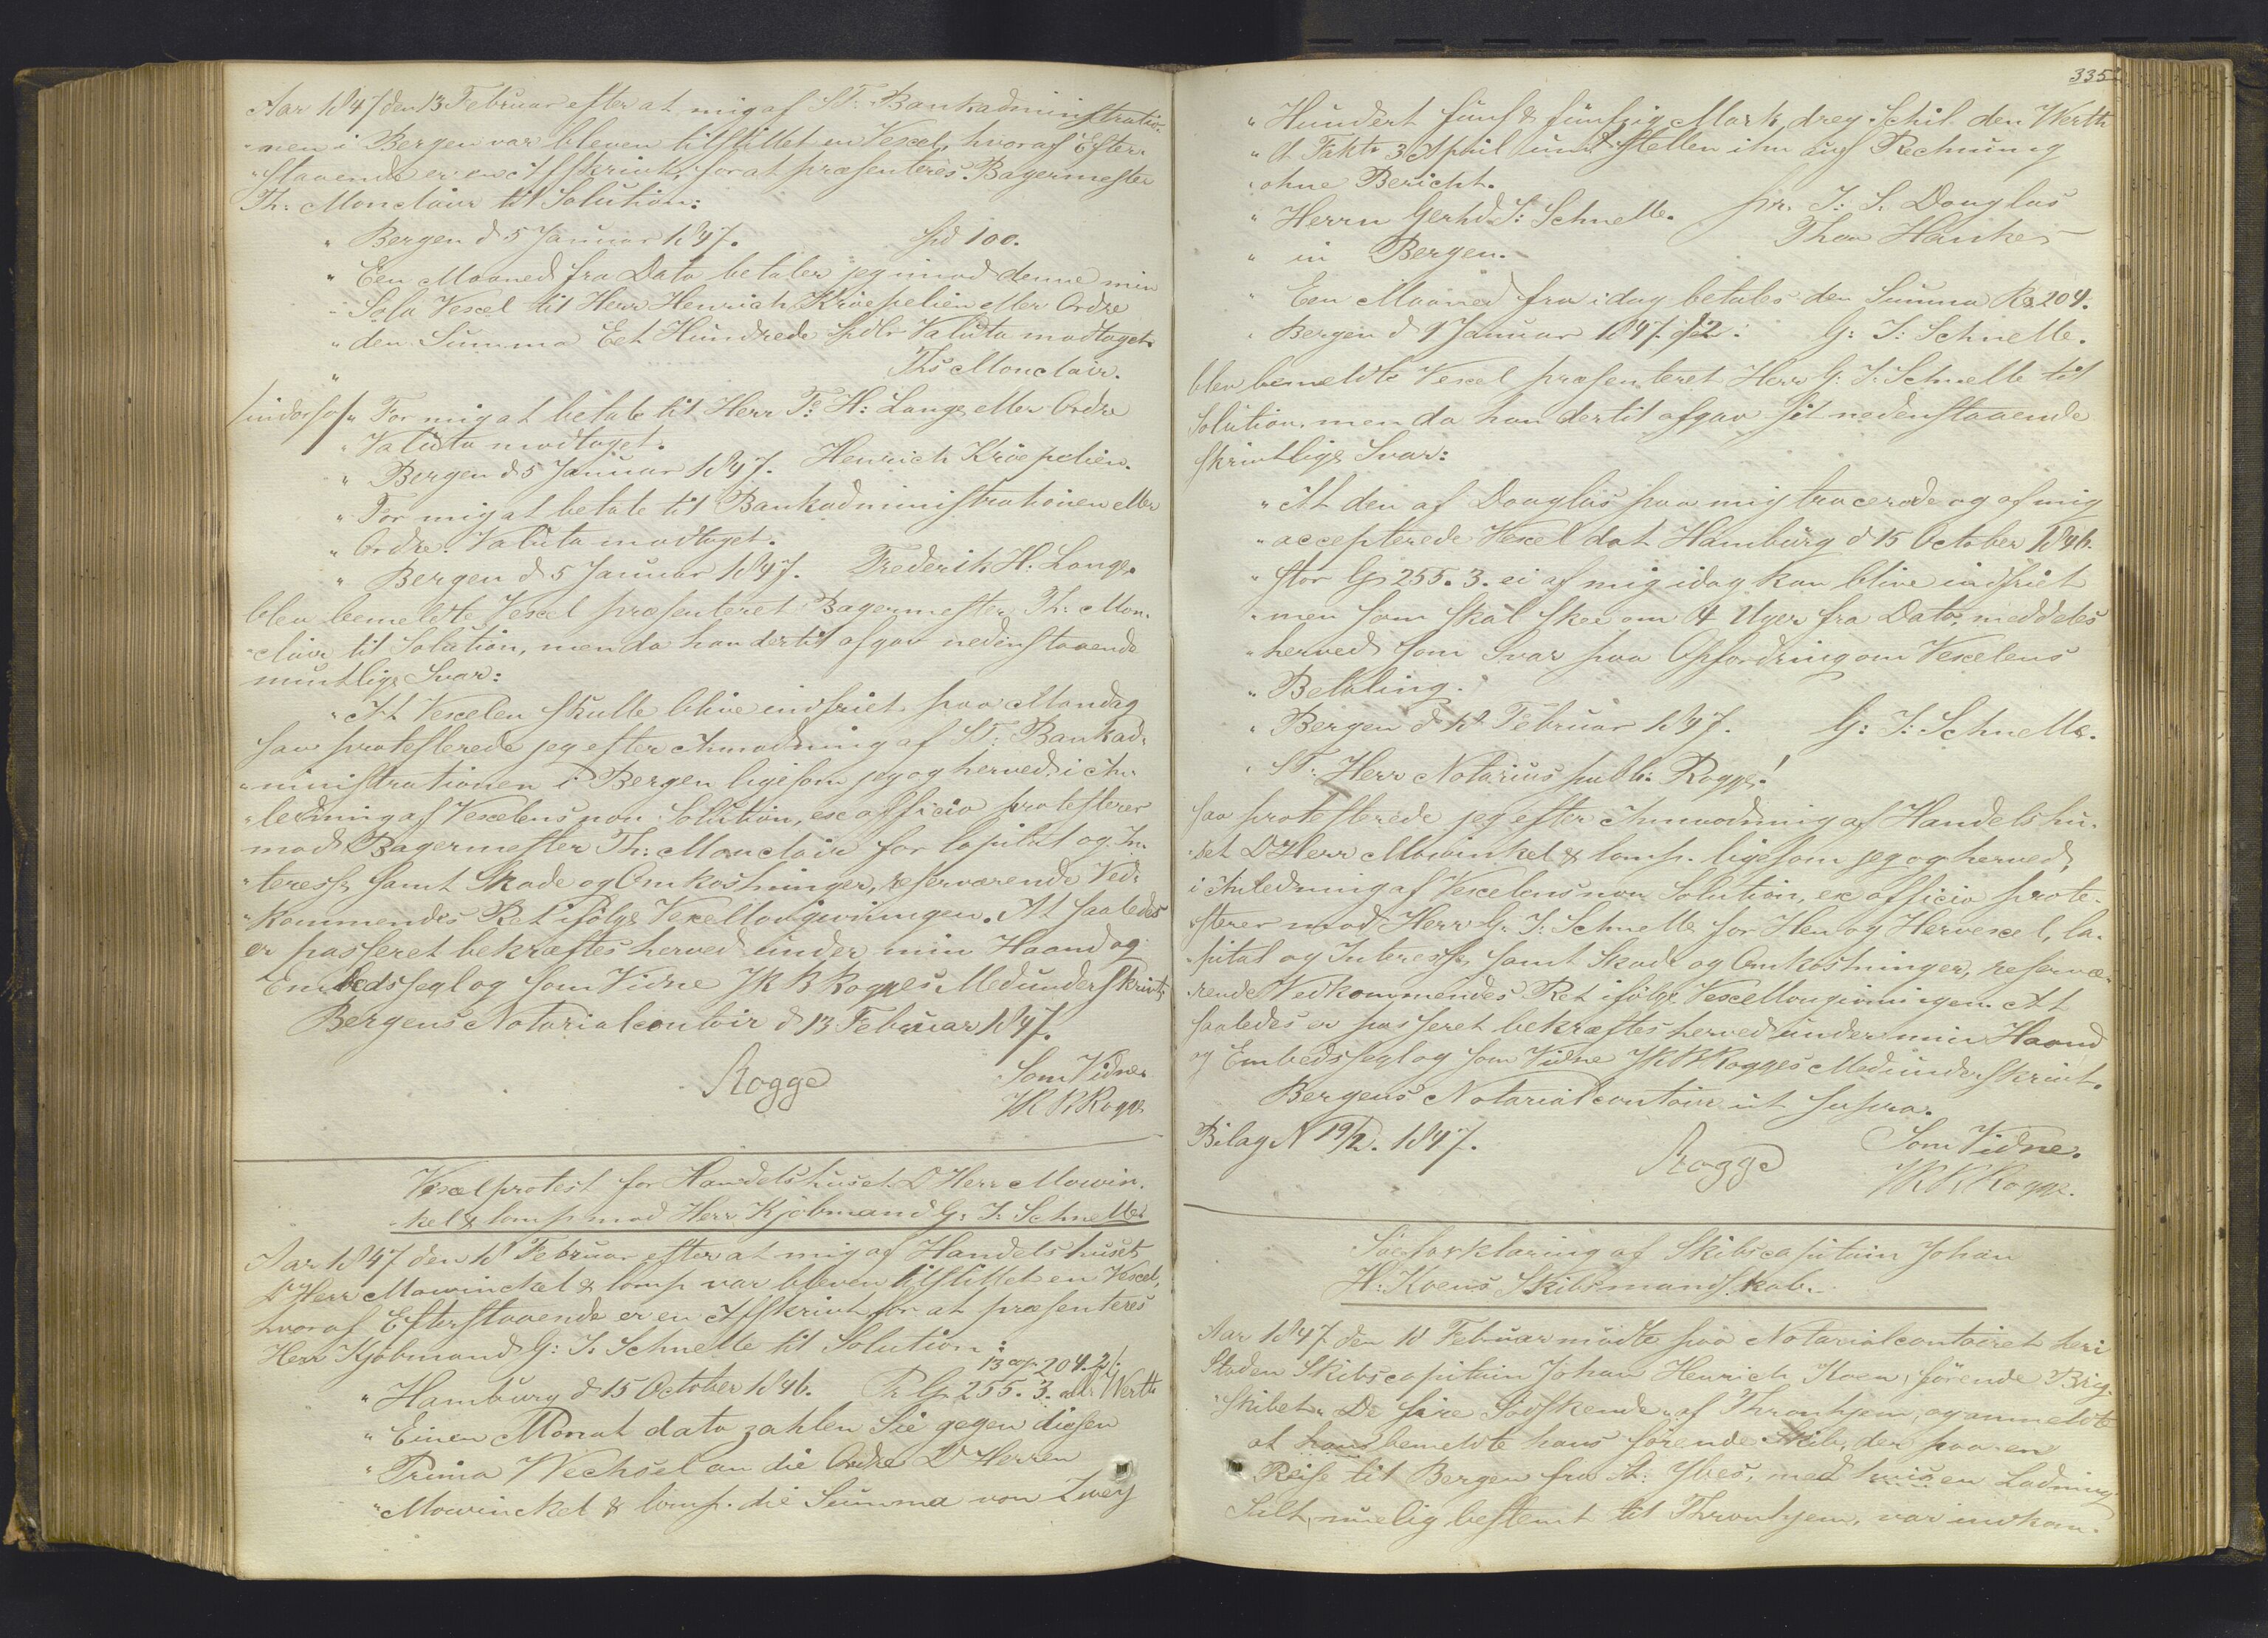 Aar 1847 den 13 Februar efter at mig af ST. Bankadministratio-
nen i Bergen var bleven tilstillet en Vexel, hvoraf Efter-
staaende er en Afskrivt, for at præsenteres Bagermester
Th: Monclair til Solution:
" Bergen d 5 Januar 1847. Spd 100.
" Een Maaned fra Dato betaler jeg imod denne min
" Sola Vexel til Herr Henrich Kroepelien eller Ordre
" den Summa Eet Hundrede Spdlr Valuta modtaget.
" Ths Monclair.
/indorso/ " For mig at betale til Herr F: H: Lange eller Ordre
" Valuta modtaget.
" Bergen d 5 Januar 1847. Henrich Kroepelien.
" For mig at betale til Bankadministrationen eller
" Ordre. Valuta modtaget.
" Bergen d 5 Januar 1847. Frederik H. Lange.
blev bemeldte Vexel præsenteret Bagermester Th: Mon-
clair til Solution, men da han dertil afgav nedenstaaende
muntlige Svar:
" At Vexelen skulle blive indfriet paa Mandag
saa protesterede jeg efter Anmodning af ST: Bankad-
ministrationen i Bergen ligesom jeg og herved i An-
ledning af Vexelens non Solution, ex officio protesterer
mod Bagermester Th: Monclair for Capital og In-
teresse, samt Skade og Omkostninger, reserverende Ved-
kommendes Ret ifölge Vexellovgivningen. At saaledes
er passeret bekræftes herved under min Haand og
Embedssegl og som Vidne JKRRogges Medunderskrivt.
Bergens Notarialcontoir d 13 Februar 1847.
Rogge Som Vidne.
JKRRogge
Vexelprotest for Handelshuset DHerr Mowin-
kel & Comp mod Herr Kjöbmand G: J: Schnelle.
Aar 1847 den 18 Februar efter at mig af Handelshuset
DHerr Mowinckel & Comp var bleven tilstillet en Vexel,
hvoraf Efterstaaende er en Afskrivt for at præsenteres
Herr Kjöbmand G: J. Schnelle til Solution:
204. 2
" Hamburg d 15 October 1846. 255. 3. Werth
" Einen Monat dato zahlen Sie gegen diesen
" Prima Wechsel an die Ordre DHerren
" Mowinckel & Comp. die Summa von Zwey
335
" Hundert fünf & fünfzig Mark, drey Schil. den Werth
" 3 April und stellen ihn auf Rechnung
" ohne Bericht.
" Herrn Gerhd J: Schnelle. pr. J. S. Douglas
" in Bergen. Hankes
" Een Maaned fra idag betales den Summa 204.
" Bergen d 9 Januar 1847. G: J: Schnelle.
blev bemeldte Vexel præsenteret Herr G: J: Schnelle til
Solution, men da han dertil afgav sit nedenstaaende
skrivtlige Svar:
" At den af Douglas paa mig tracerede og af mig
" accepterede Vexel dat. Hamburg d 15 October 1846.
" stor 255. 3. ei af mig idag kan blive indfriet
" men som skal skee om 4 Uger fra Dato, meddeles
" herved som Svar paa Opfordring om Vexelens
" Betaling.
" Bergen d 18 Februar 1847. G: J: Schnelle.
" ST: Herr Notarius publ: Rogge!
saa protesterede jeg efter Anmodning af Handelshu-
set DHerr Mowinkel & Comp. ligesom jeg og herved,
i Anledning af Vexelens non Solution, ex officio prote-
sterer mod Herr G. J: Schnelle for Hen og Hervexel, Ca-
pital og Interesse, samt Skade og Omkostninger, reserve-
rende Vedkommendes Ret ifölge Vexellovgivningen. At
saaledes er passeret bekræftes herved under min Haand
og Embedssegl og som Vidne JKRRogges Medunderskrivt.
Bergens Notarialcontoir ut supra.
Bilag N 19/2. 1847. Rogge Som Vidne.
JKRRogge.
Söeforklaring af Skibscapitain Johan
H: Koens Skibsmandskab.
Aar 1847 den 18 Februar mödte paa Notarialcontoiret heri
Staden Skibscapitain Johan Henrich Koen, förende Brig-
skibet "De fire Södskende" af Thronhjem, og anmeldte
at hans bemeldte hans förende Skib, der paa en
Reise til Bergen fra St: Ybes, med een Ladning
Salt, bestemt til Thronhjem, var indkom-